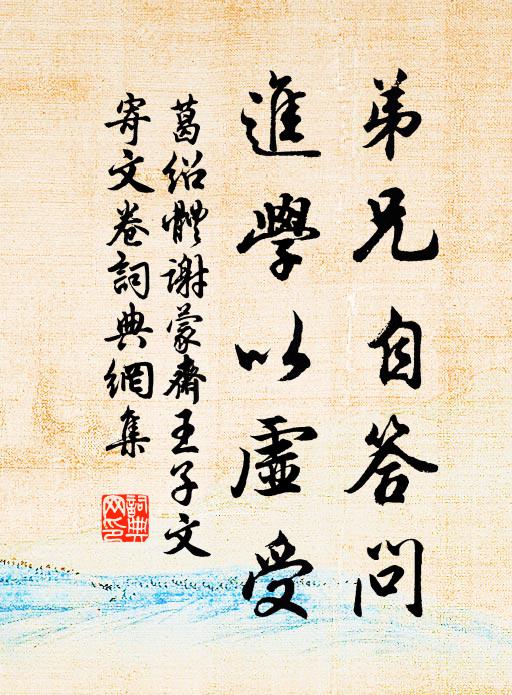 弟兄自答問
進學以虛受
葛绍體謝蒙齋王子文
寄文卷詞典網集
詞典網印